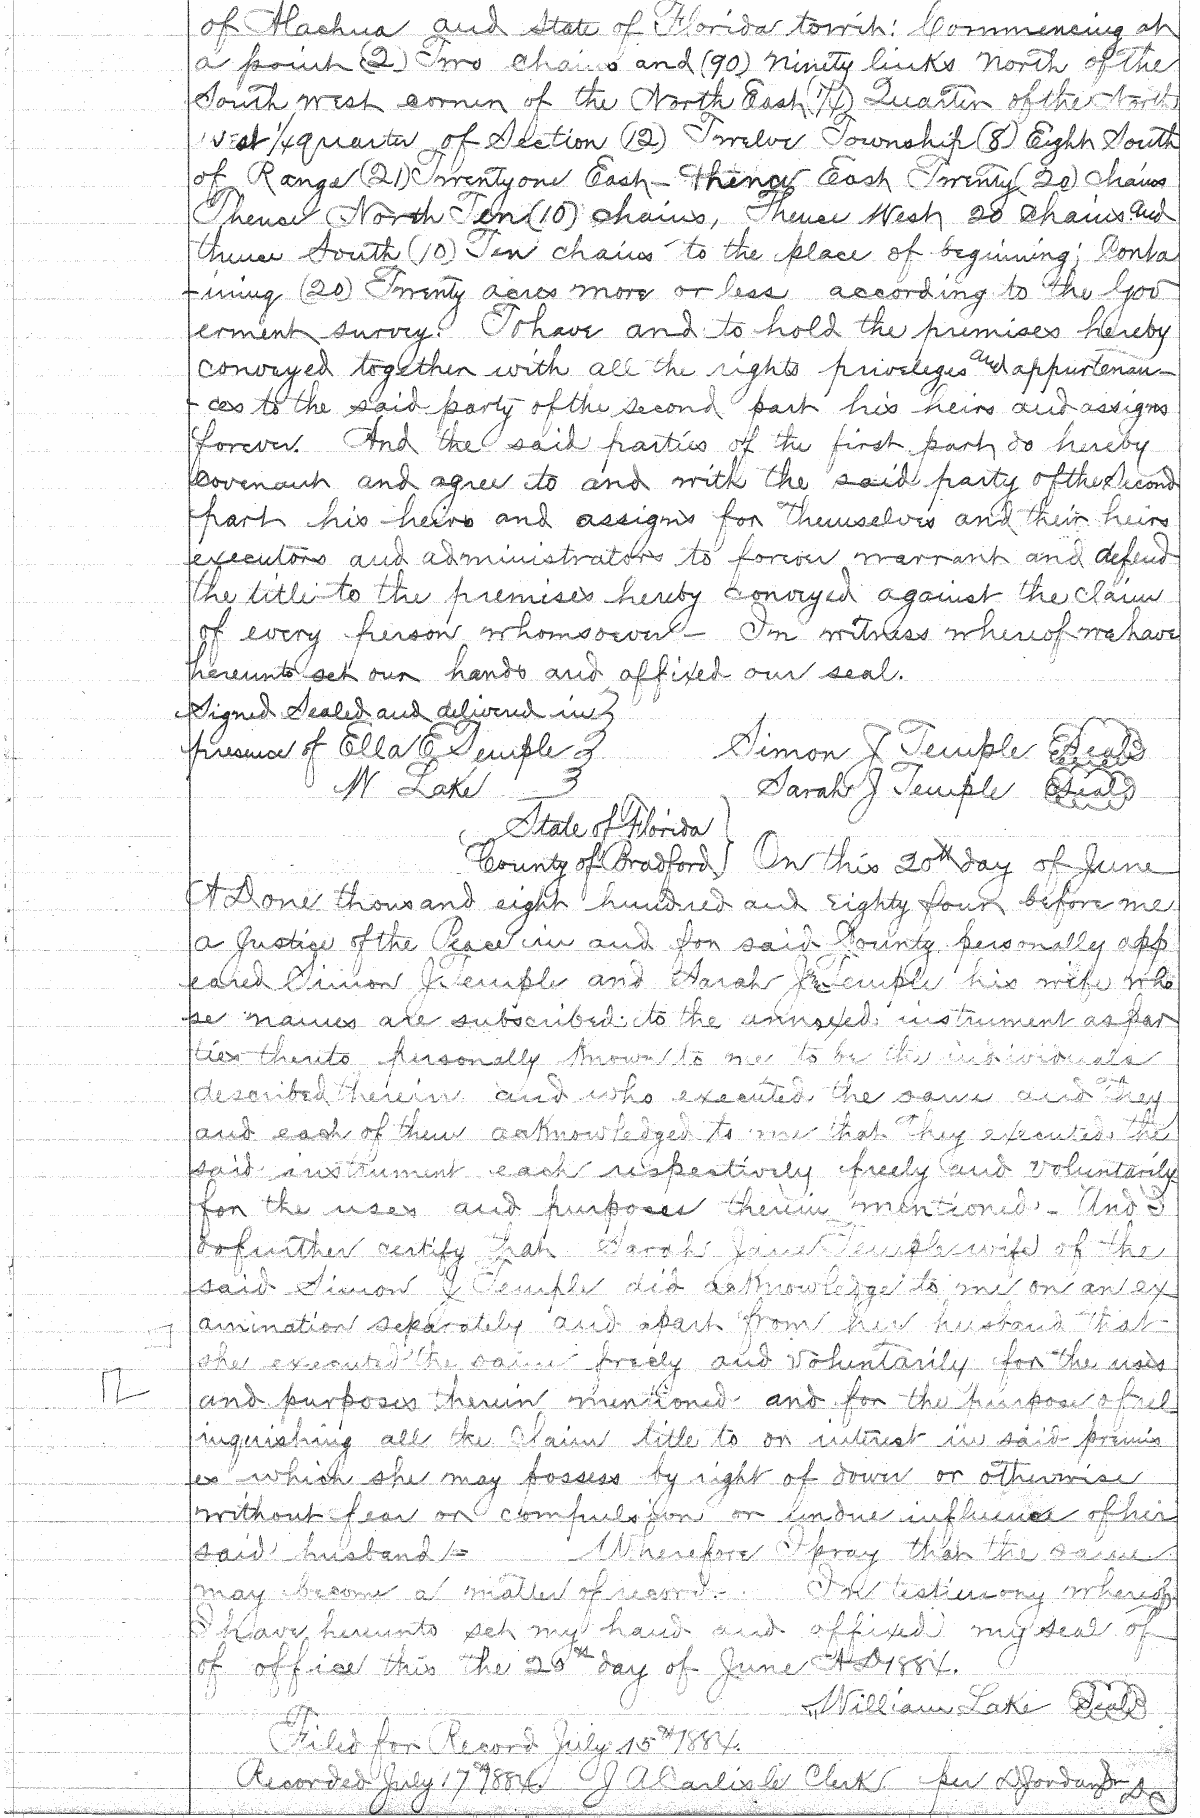 of Alachua and State of Florida towit: Commencing at
a point (2) Two chains and (90) ninety links North of the
South west corner of the North East (¼) Quarter of the North
West ¼ quarter of Section (12) Twelve Township (8) Eight South
of Range (21) Twenty one East - Thence East Twenty (20) chains
Thence North Ten (10) chains, Thence West 20 chains and
thence South (10) Ten chains to the place of beginning; Conta
-ining (20) Twenty acres more or less according to the Gov
erment survey. To have and to hold the premises hereby
conveyed together with all the rights privileges and appurtenan-
-ces to the said party of the second part his heirs and assigns
forever. And the said parties of the first part do hereby
covenant and agree to and with the said party of the Second
part his heirs and assigns for themselves and their heirs
executors and administrators to forever warrant and defend
the title to the premises hereby conveyed against the claim
of every person whomsoever - In witness whereof we have
hereunto set our hands and affixed our seal.
Signed Sealed and delivered in
presence of Ella E Temple Simon J Temple Seal
W Lake Sarah J Temple Seal
State of Florida
County of Bradford On this 20th day of June
A D one thousand eight hundred and eighty four before me
a Justice of the Peace in and for said County personally app
eared Simon J Temple and Sarah J Temple his wife who
se names are subscribed to the annexed instrument as par
ties thereto personally known to me to be the individuals
described therein and who executed the same and they
and each of them acknowledged to me that they executed the
said instrument each respectively freely and voluntarily
for the uses and purposes therein mentioned - And I
do further certify that Sarah Jane Temple wife of the
said Simon J Temple did acknowledge to me on an ex
amination separately and apart from her husband that
she executed the same freely and voluntarily for the uses
and purposes therein mentioned and for the purpose of rel
inquishing all the claim title to or interest in said premis
es which she may possess by right of dower or otherwise
without fear or compulsion or undue influence of her
said husband - Wherefore I pray that the same
may become a matter of record. In testimony whereof
I have hereunto set my hand and affixed my seal of
of office this the 20th day of June A D 1884.
William Lake Seal
Filed for Record July 15th 1884.
Recorded July 17th 1884. J A Carlisle Clerk per D Jordan Jr D C